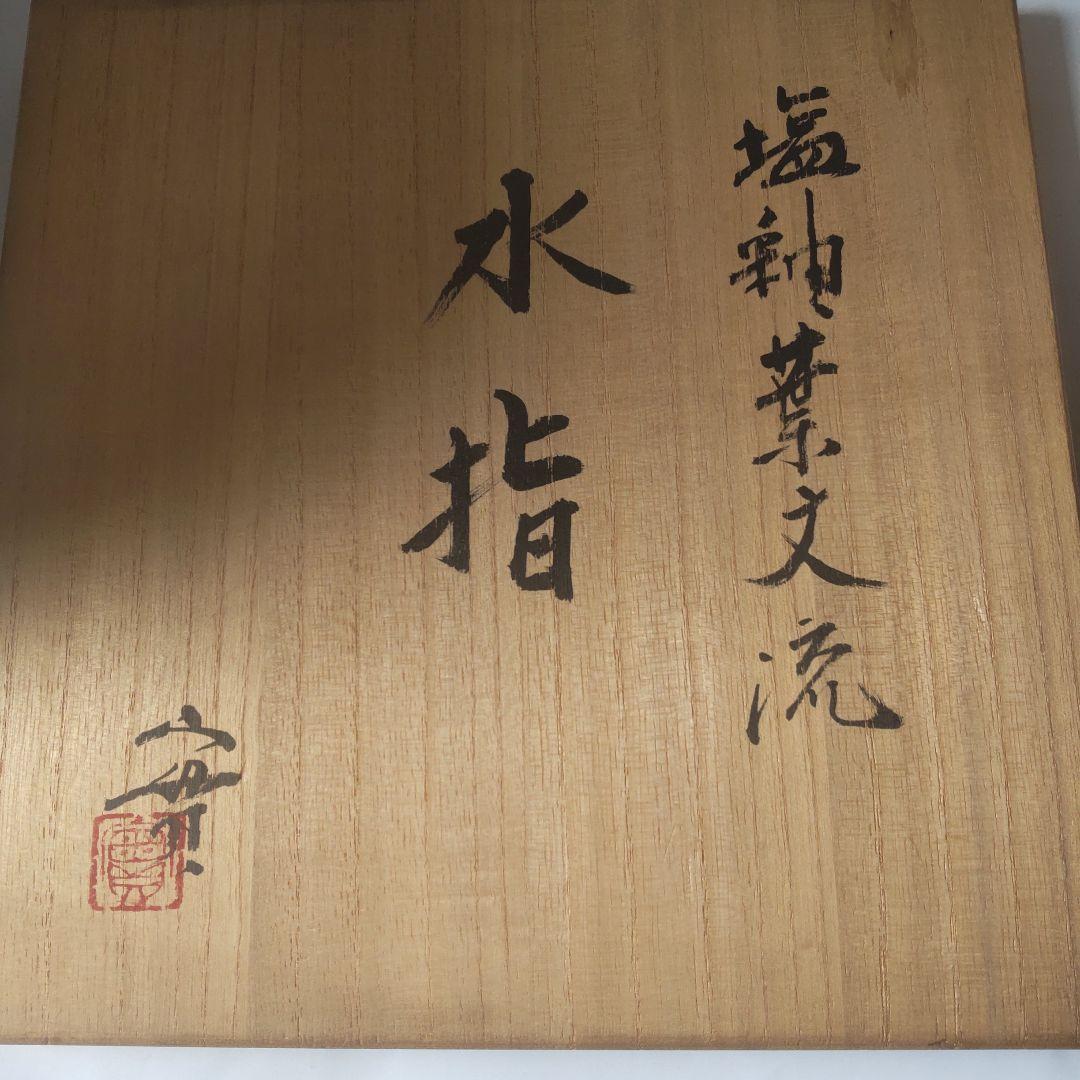 塩釉葉文流
水指
實